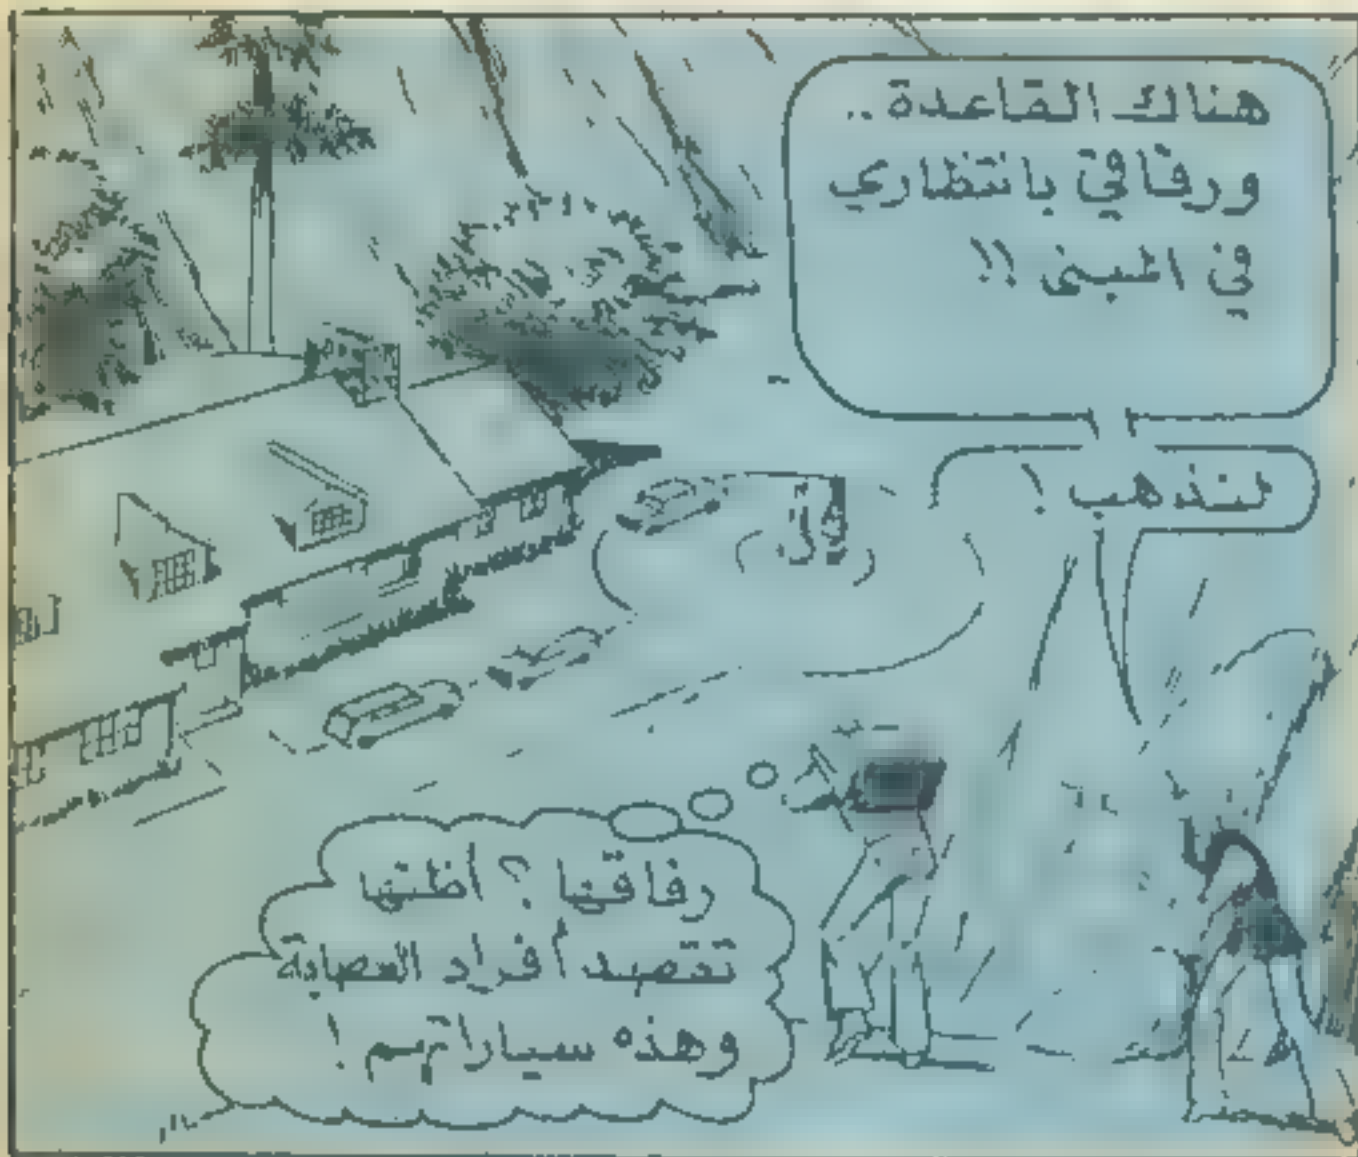 هناك القاعدة ..
ورفاقي بانتظاري
في المبنى !!
لنذهب !
رفاقها ؟ أظنها
تقصد أفراد العصابة
وهذه سياراتهم !